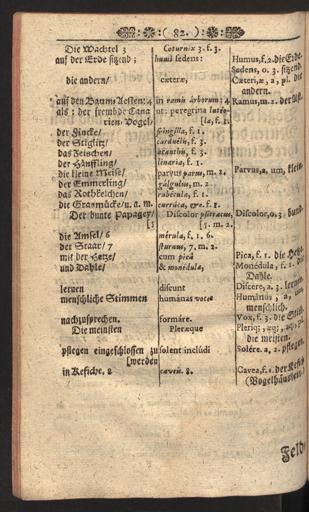 ( 82. )
Die Wachtel 3
auf der Erde sitzend;
die andern/
auf den Baum-Aesten: 4
als: der frembde Cana
rien-Vogel/
der Fincke/
der Stiglitz/
das Zeischen/
der Hänffling/
die kleine Meise/
der Emmerling/
das Rothkelchen/
die Grasmücke/u. a. m.
Der bunte Papagey/
[5
die Amsel/ 6
der Staar/ 7
mit der Hetze/
und Dahle/
lernen
menschliche Stimmen
nachzusprechen.
Die meinsten
pflegen eingeschlossen zu
[werden
in Kefiche, 8
Coturnix 3. f. 3.
humi sedens:
cæteræ
in ramis árborum: 4
ut: peregrina lutéo-
[la, f. 1.
fringílla, f. 1.
carduélis, f. 3.
acanthis, f. 3.
linaria, f. 1.
parvus parus, m. 2.
gálgulus, m. 2.
rubécula, f. 1.
currúca, &c. f. 1.
Discolor psittacus,
[5. m. 2.
mérula, f. 1. 6.
sturnus, 7. m. 2.
cum picâ
& monédula,
discunt
humánas voces
formáre.
Pleræque
solent inclúdi
caveis. 8.
Humus, f. 2. die Erde.
Sedens, o. 3. sitzend.
Cæteri, æ, a, pl. die
andern.
Ramus, m. 2. der Ast.
Parvus, a, um, klein.
Discolor, o. 3. bund.
Pica, f. 1. die Hetze.
Monédula, f. 1. die
Dahle.
Discere, a. 3. lernen.
Humánus, a, um,
menschlich.
Vox, f. 3. die Stim
Pleríq;, æq;, aq;, pl.
die meisten.
Solére. a. 2. pflegen.
Cavea, f. 1. der Kefich
(Vogelhäuslein.)
Feld-